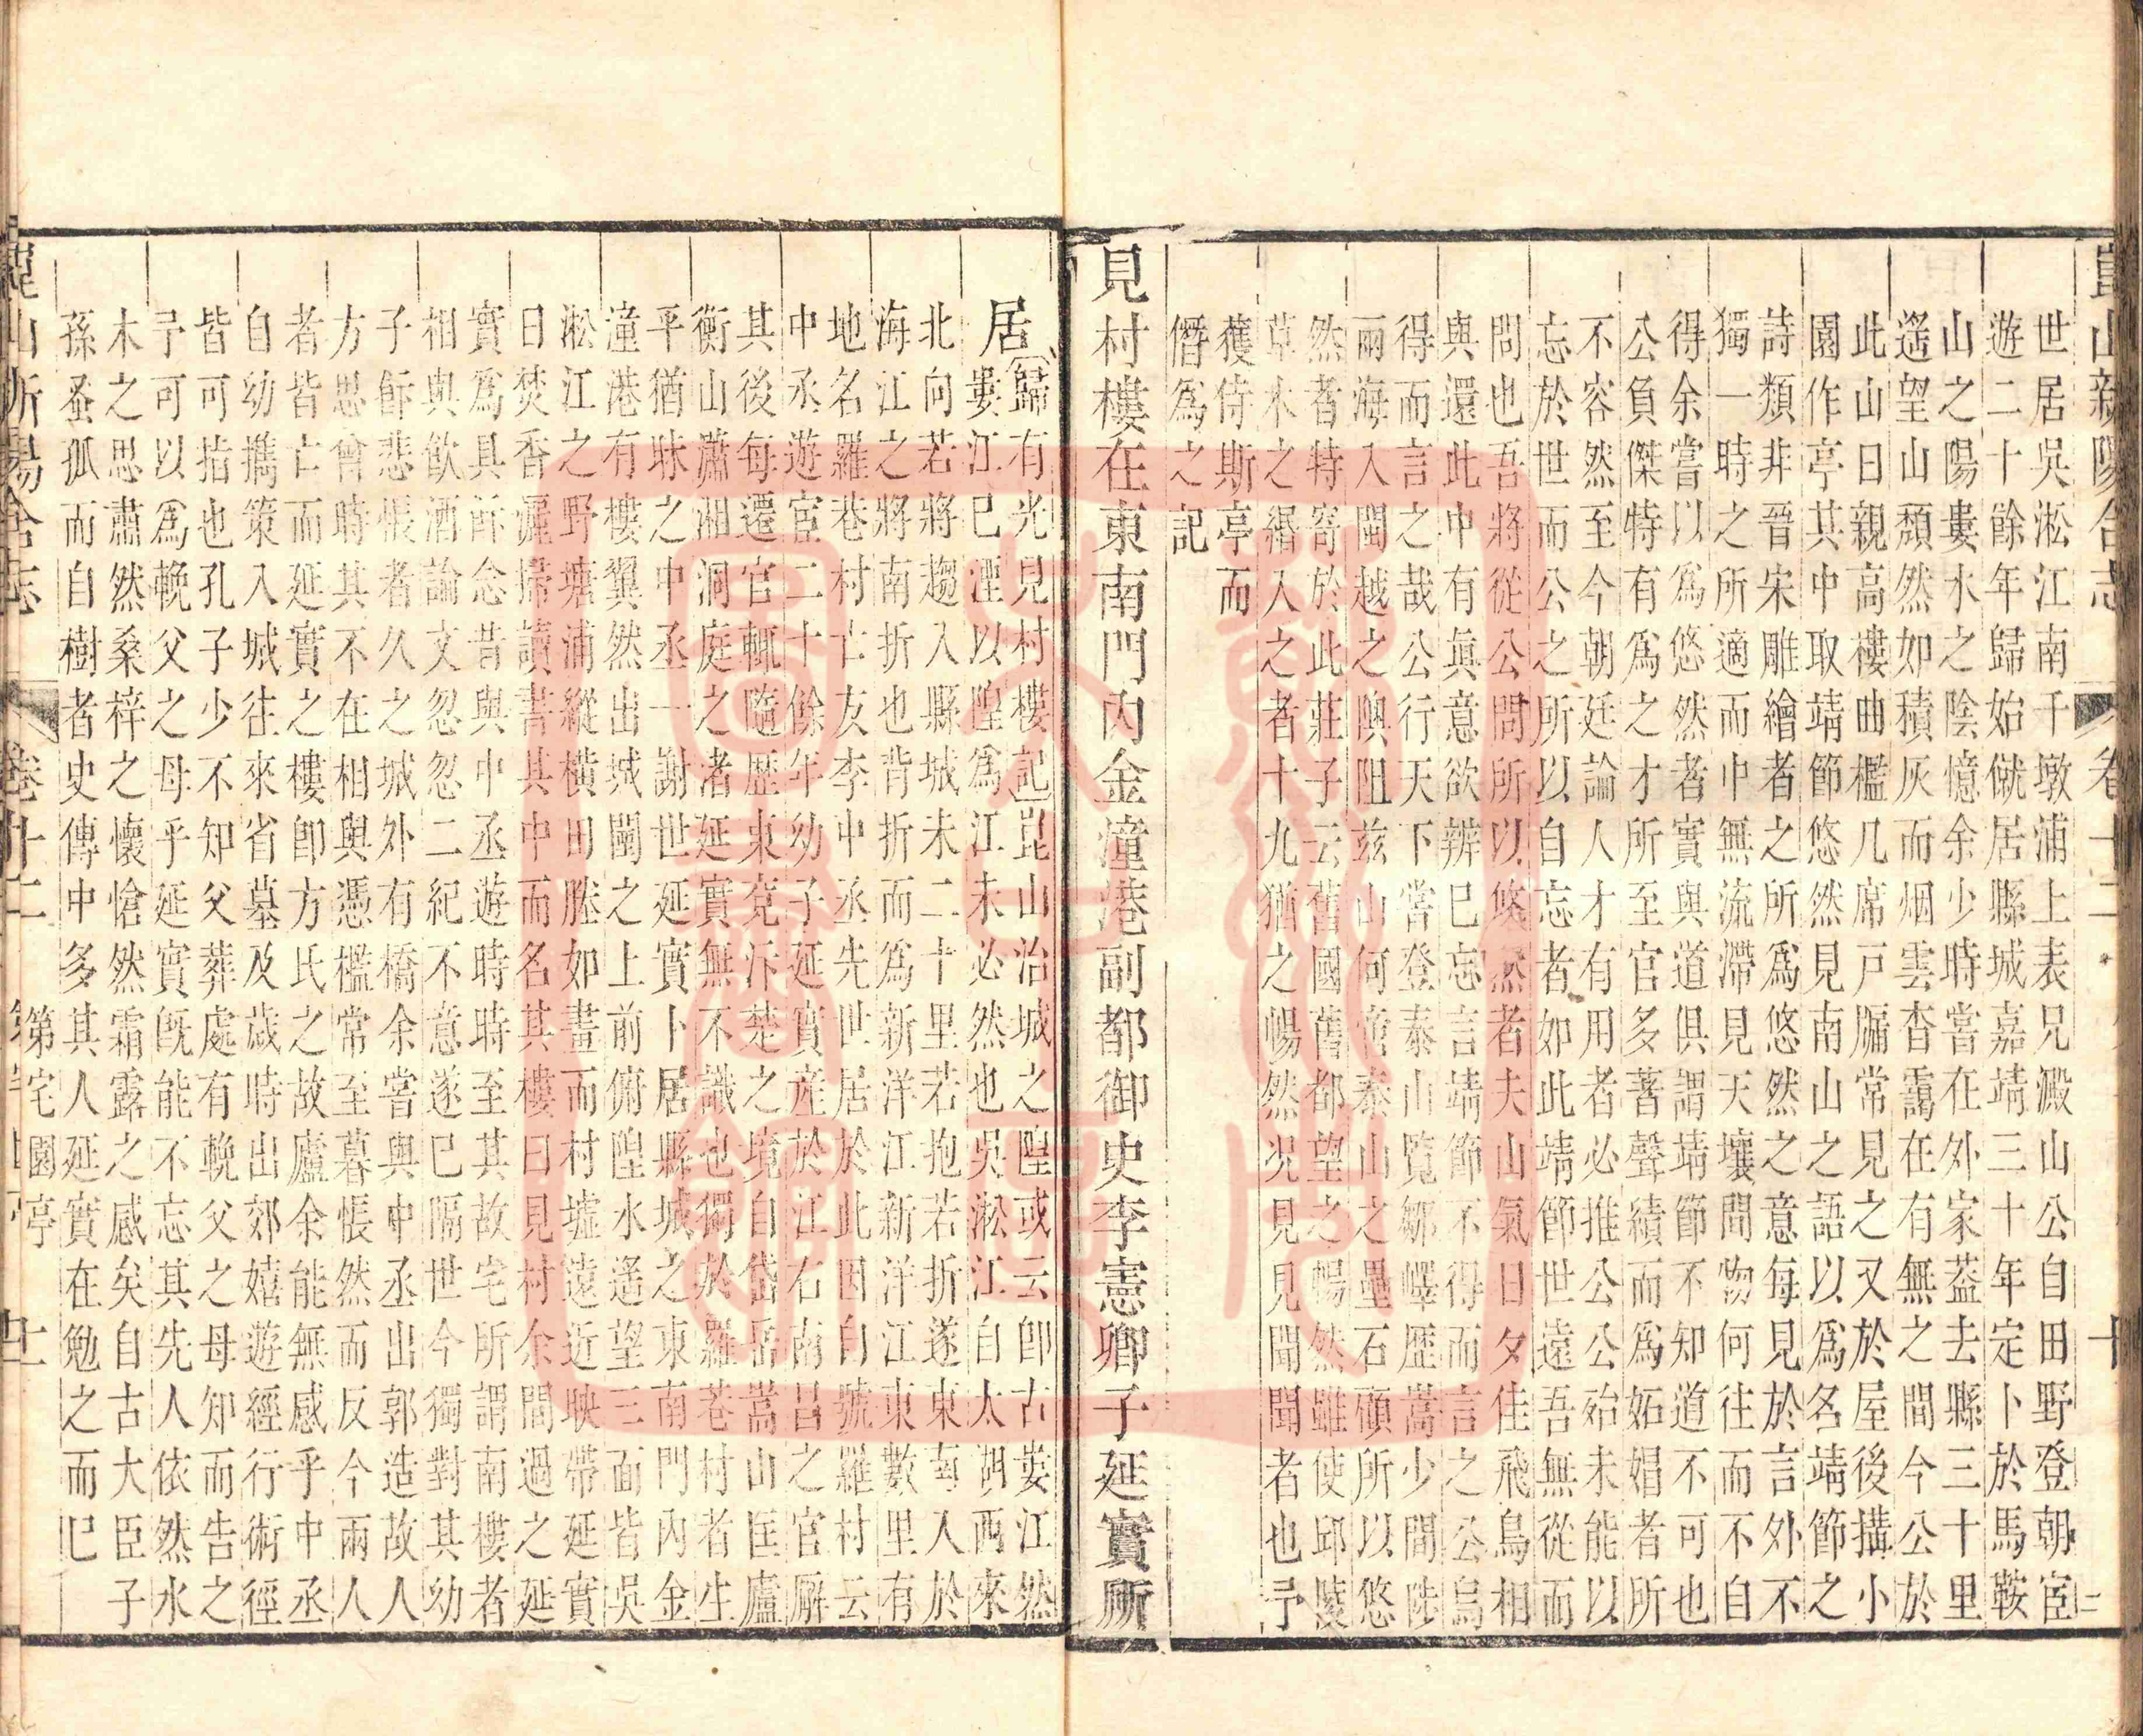 崑山新陽合志 卷十二 十
世居吳淞江南千墩浦上表兄澱山公自田野登朝宦
遊二十餘年歸始僦居縣城嘉靖三十年定卜於馬鞍
山之陽婁水之陰憶余少時嘗在外家葢去縣三十里
遥望山頹然如積灰而烟雲杳靄在有無之間今公於
此山日親高樓曲檻几席戸牖常見之又於屋後搆小
園作亭其中取靖節悠然見南山之語以爲名靖節之
詩類非晉宋雕繪者之所爲悠然之意每見於言外不
獨一時之所適而中無流滯見天壤間物何往而不自
得余嘗以爲悠然者實與道俱謂靖節不知道不可也
公負傑特有爲之才所至官多著聲績而爲妬媢者所
不容然至今朝廷論人才有用者必推公公殆未能以
忘於世而公之所以自忘者如此靖節世遠吾無從而
問也吾將從公問所以悠然者夫山氣日夕佳飛鳥相
與還此中有眞意欲辨巳忘言靖節不得而言之公烏
得而言之哉公行天下嘗登泰山覽鄒嶧歴嵩少間陟
兩海入閩越之隩阻兹山何啻泰山之壘石顧所以悠
然者特寄於此莊子云舊國舊都望之暢然雖使邱陵
草木之緡入之者十九猶之暢然况見見聞聞者也予
獲侍斯亭而
僭爲之記
見村樓在東南門內金潼港副都御史李憲卿子延實所
居 歸有光見村樓記 崑山治城之隍或云卽古婁江然
婁江已湮以隍爲江未必然也吳淞江自太湖西來
北向若將趨入縣城未二十里若抱若折遂東南入於
海江之將南折也背折而爲新洋江新洋江東數里有
地名羅巷村亡友李中丞先世居於此因自號羅村云
中丞遊宦二十餘年幼子延實産於江右南昌之官廨
其後每遷官輒隨歴東兗汴楚之境自岱岳嵩山匡廬
衡山瀟湘洞庭之渚延實無不識也獨於羅巷村者生
平猶昧之中丞一謝世延實卜居縣城之東南門內金
潼港有樓翼然出城闉之上前俯隍水遥望三面皆吳
淞江之野塘浦縱橫田塍如畫而村墟遠近映帶延實
日焚香灑掃讀書其中而名其樓曰見村余間過之延
實爲具酌念昔與中丞遊時時至其故宅所謂南樓者
相與飮酒論文忽忽二紀不意遂已隔世今獨對其幼
子飾悲悵者久之城外有橋余嘗與中丞出郭造故人
方思曾時其不在相與憑檻常至暮悵然而反今兩人
者皆亡而延實之樓卽方氏之故廬余能無感乎中丞
自幼攜策入城往來省墓及歲時出郊嬉遊經行術徑
皆可指也孔子少不知父葬處有輓父之母知而告之
予可以爲輓父之母乎延實旣能不忘其先人依然水
木之思肅然桑梓之懷愴然霜露之感矣自古大臣子
孫蚤孤而自樹者史傳中多其人延實在勉之而已
崑山新陽合志 卷十二 第宅園亭 十一